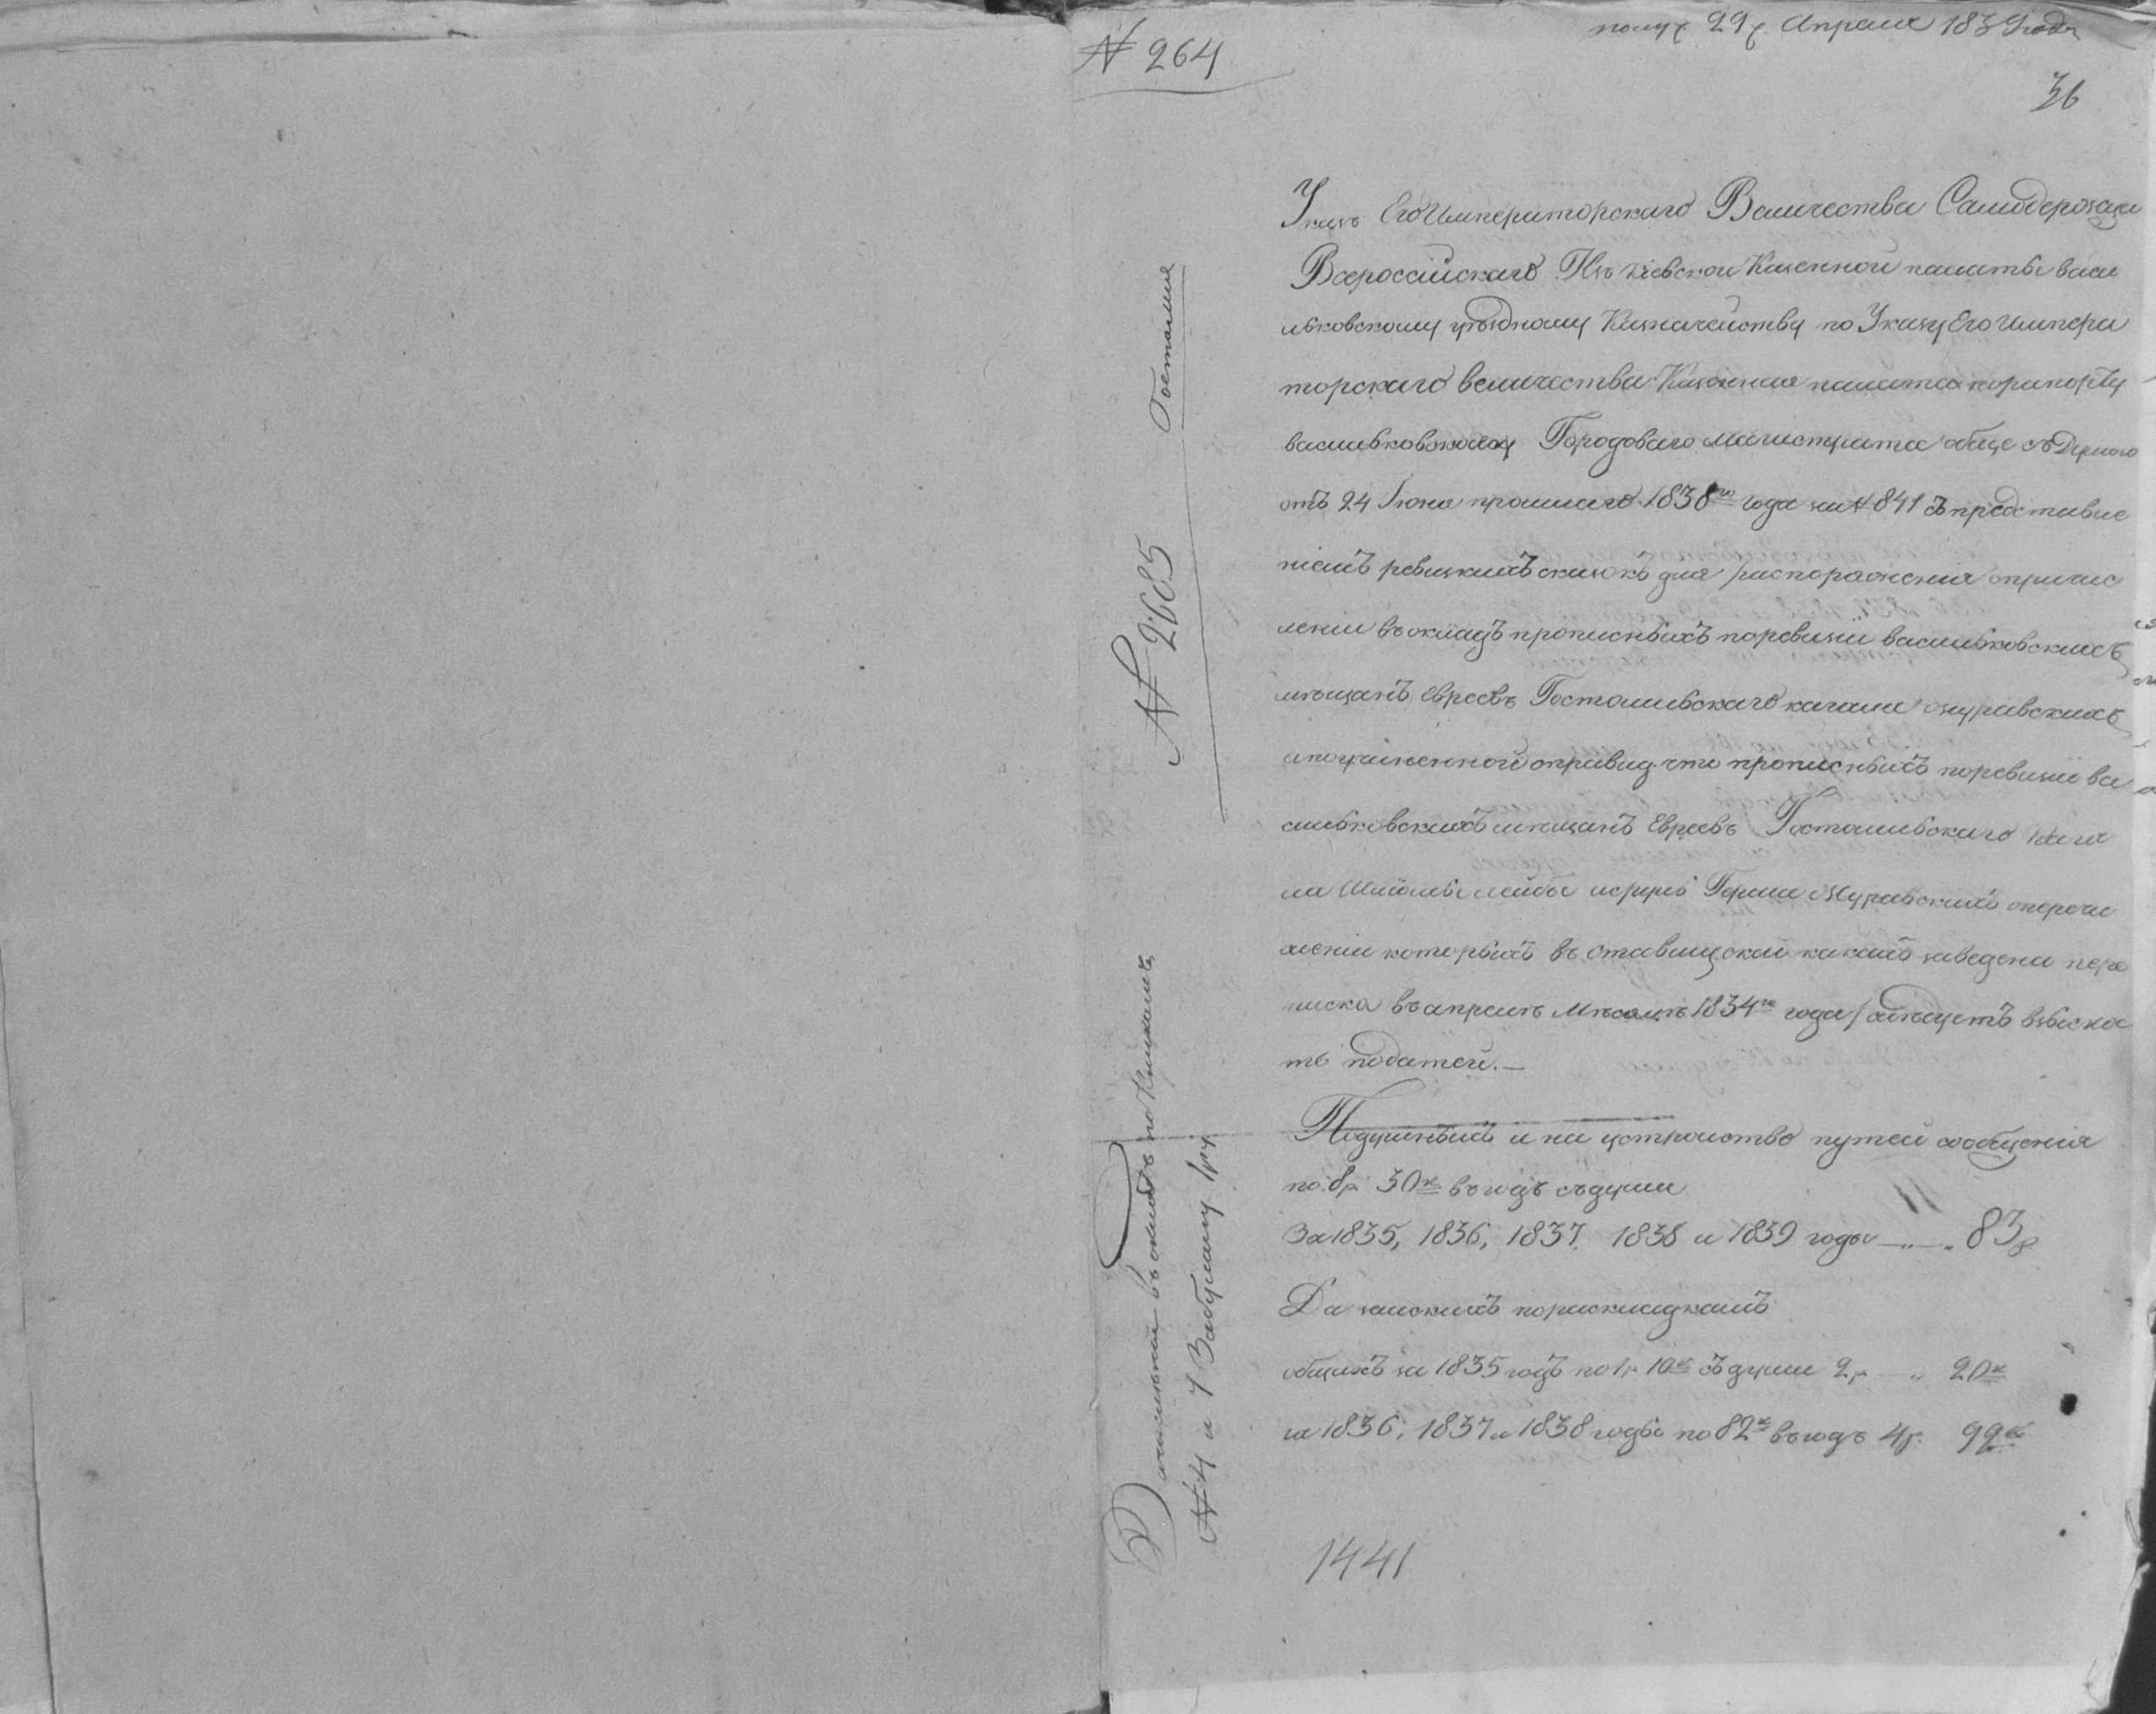 № 264
получ 29 Апреля 1839 года
36
Указъ Его Императорскаго Величества Самодержца
Всероссійскаго Изъ Кіевской Казенной палаты Васи
льковскому уѣздному Казначейству по Указу Его Импера
торскаго величества Казенная палата по рапорту
васильковскаго Городоваго магистрата обще съ Думою
отъ 24 Іюня прошлаго 1838го года за № 841 съ представле
ніемъ ревизкихъ сказокъ для распоряженія о причис
леніи въ окладъ прописныхъ по ревизіи васильковскихъ
мѣщанъ Евреевъ Гостомльскаго кагала Озуравскихъ
что прописныхъ по ревизіи ва
сильковскихъ мѣщанъ Евреевъ Гостомльскаго кага
ла Шмоль Лейбы Герша Озуравскихъ о перечи
сленіи которыхъ въ Ставищскій кагалъ заведена пере
писка въ апрелѣ Мѣсяцѣ 1834го года слѣдуетъ взыска
ть податей. —
Подушныхъ и на устройство путей сообщенія
по 8р 30к въ годъ съ души
За 1835, 1836, 1837, 1838 и 1839 годы — 83р
Да земскихъ по раскладкамъ
общихъ за 1835 годъ по 1р 10к съ души 2р 20к
за 1836, 1837 и 1838 годы по 82к въ годъ 4р. 99к
1441
Гостомля
№ 2685
въ окладъ
№ 4 и 7